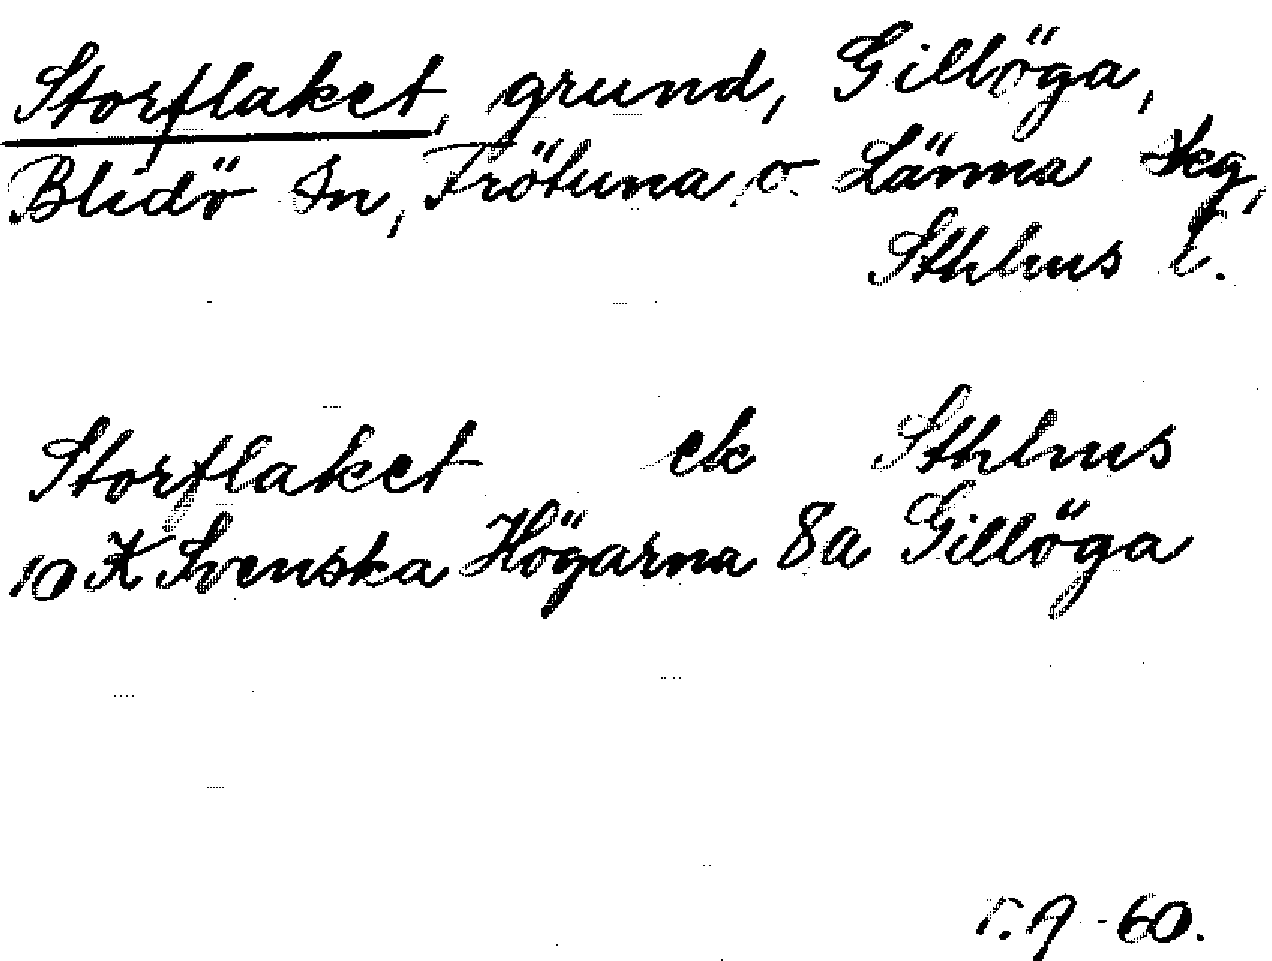 Storflaket, grund, Gillöga,
Blidö sn, Frötuna o Länna skg,
Sthlms l.
Storflaket ek Sthlms
10 K Svenska Högarna 8a Gillöga
-60.